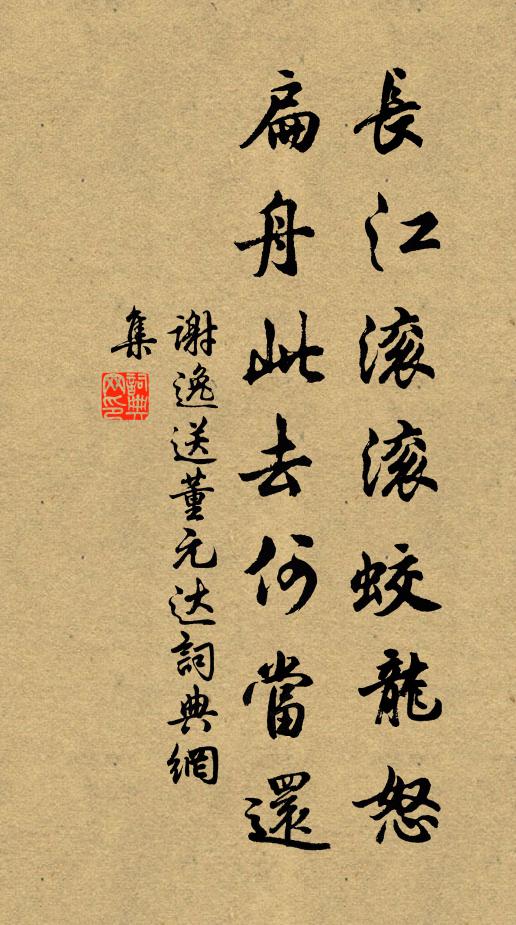 長江滚滚蛟龍怒
扁舟此去何當還
謝逸送董元达詞典網
集
詞典
网印